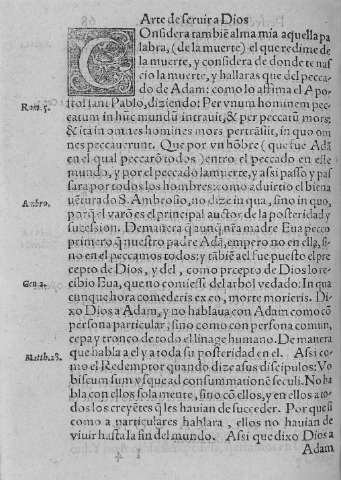 Arte de seruir a Dios
COnsidera tambiẽ alma mia aquella pa
labra, (de la muerte) el que redime de
la muerte, y considera de donde te na-
scio la muerte, y hallaras que del pecca-
do de Adam: como lo afirma el Apo-
Rom. 5.
stol sant Pablo, diziendo: Per vnum hominem pec
catum in hũc mundũ intrauit, & per peccatũ mors;
& ita in omnes homines mors pertrãsiit, in quo om
nes peccauerunt. Que por vn hõbre (que fue Adã
en el qual peccarõ todos) entro el peccado en este
mundo, y por el peccado la muerte, y assi passo y pas
sara por todos los hombres: como aduirtio el biena
Ambro.
uẽturado S. Ambrosio, no dize in qua, sino in quo,
porq̃ el varõ es el principal auctor de la posteridad y
sucession. De manera q̃ aunq̃ nr̃a madre Eua pecco
primero q̃ nuestro padre Adã, empero no en ella, si-
no en el peccamos todos; y tãbiẽ a el fue puesto el pre
cepto de Dios, y del, como p̃rcepto de Dios lo re-
Gen. 2.
cibio Eua, que no comiesse del arbol vedado. In qua
cunque hora comederis ex eo, morte morieris. Di-
xo Dios a Adam, y no hablaua con Adam como cõ
persona particular, sino como con persona comun,
cepa y tronco de todo el linage humano. De manera
que habla a el y a toda su posteridad en el. Assi co-
Matth. 28.
mo el Redemptor quando dize a sus discipulos: Vo
biscum sum vsque ad consummationẽ seculi. No ha
bla con ellos sola mente, sino cõ ellos, y en ellos a to-
dos los creyẽtes q̃ les hauian de succeder. Por que si
como a particulares hablara, ellos no hauian de
viuir hasta la fin del mundo. Assi que dixo Dios a
Adam